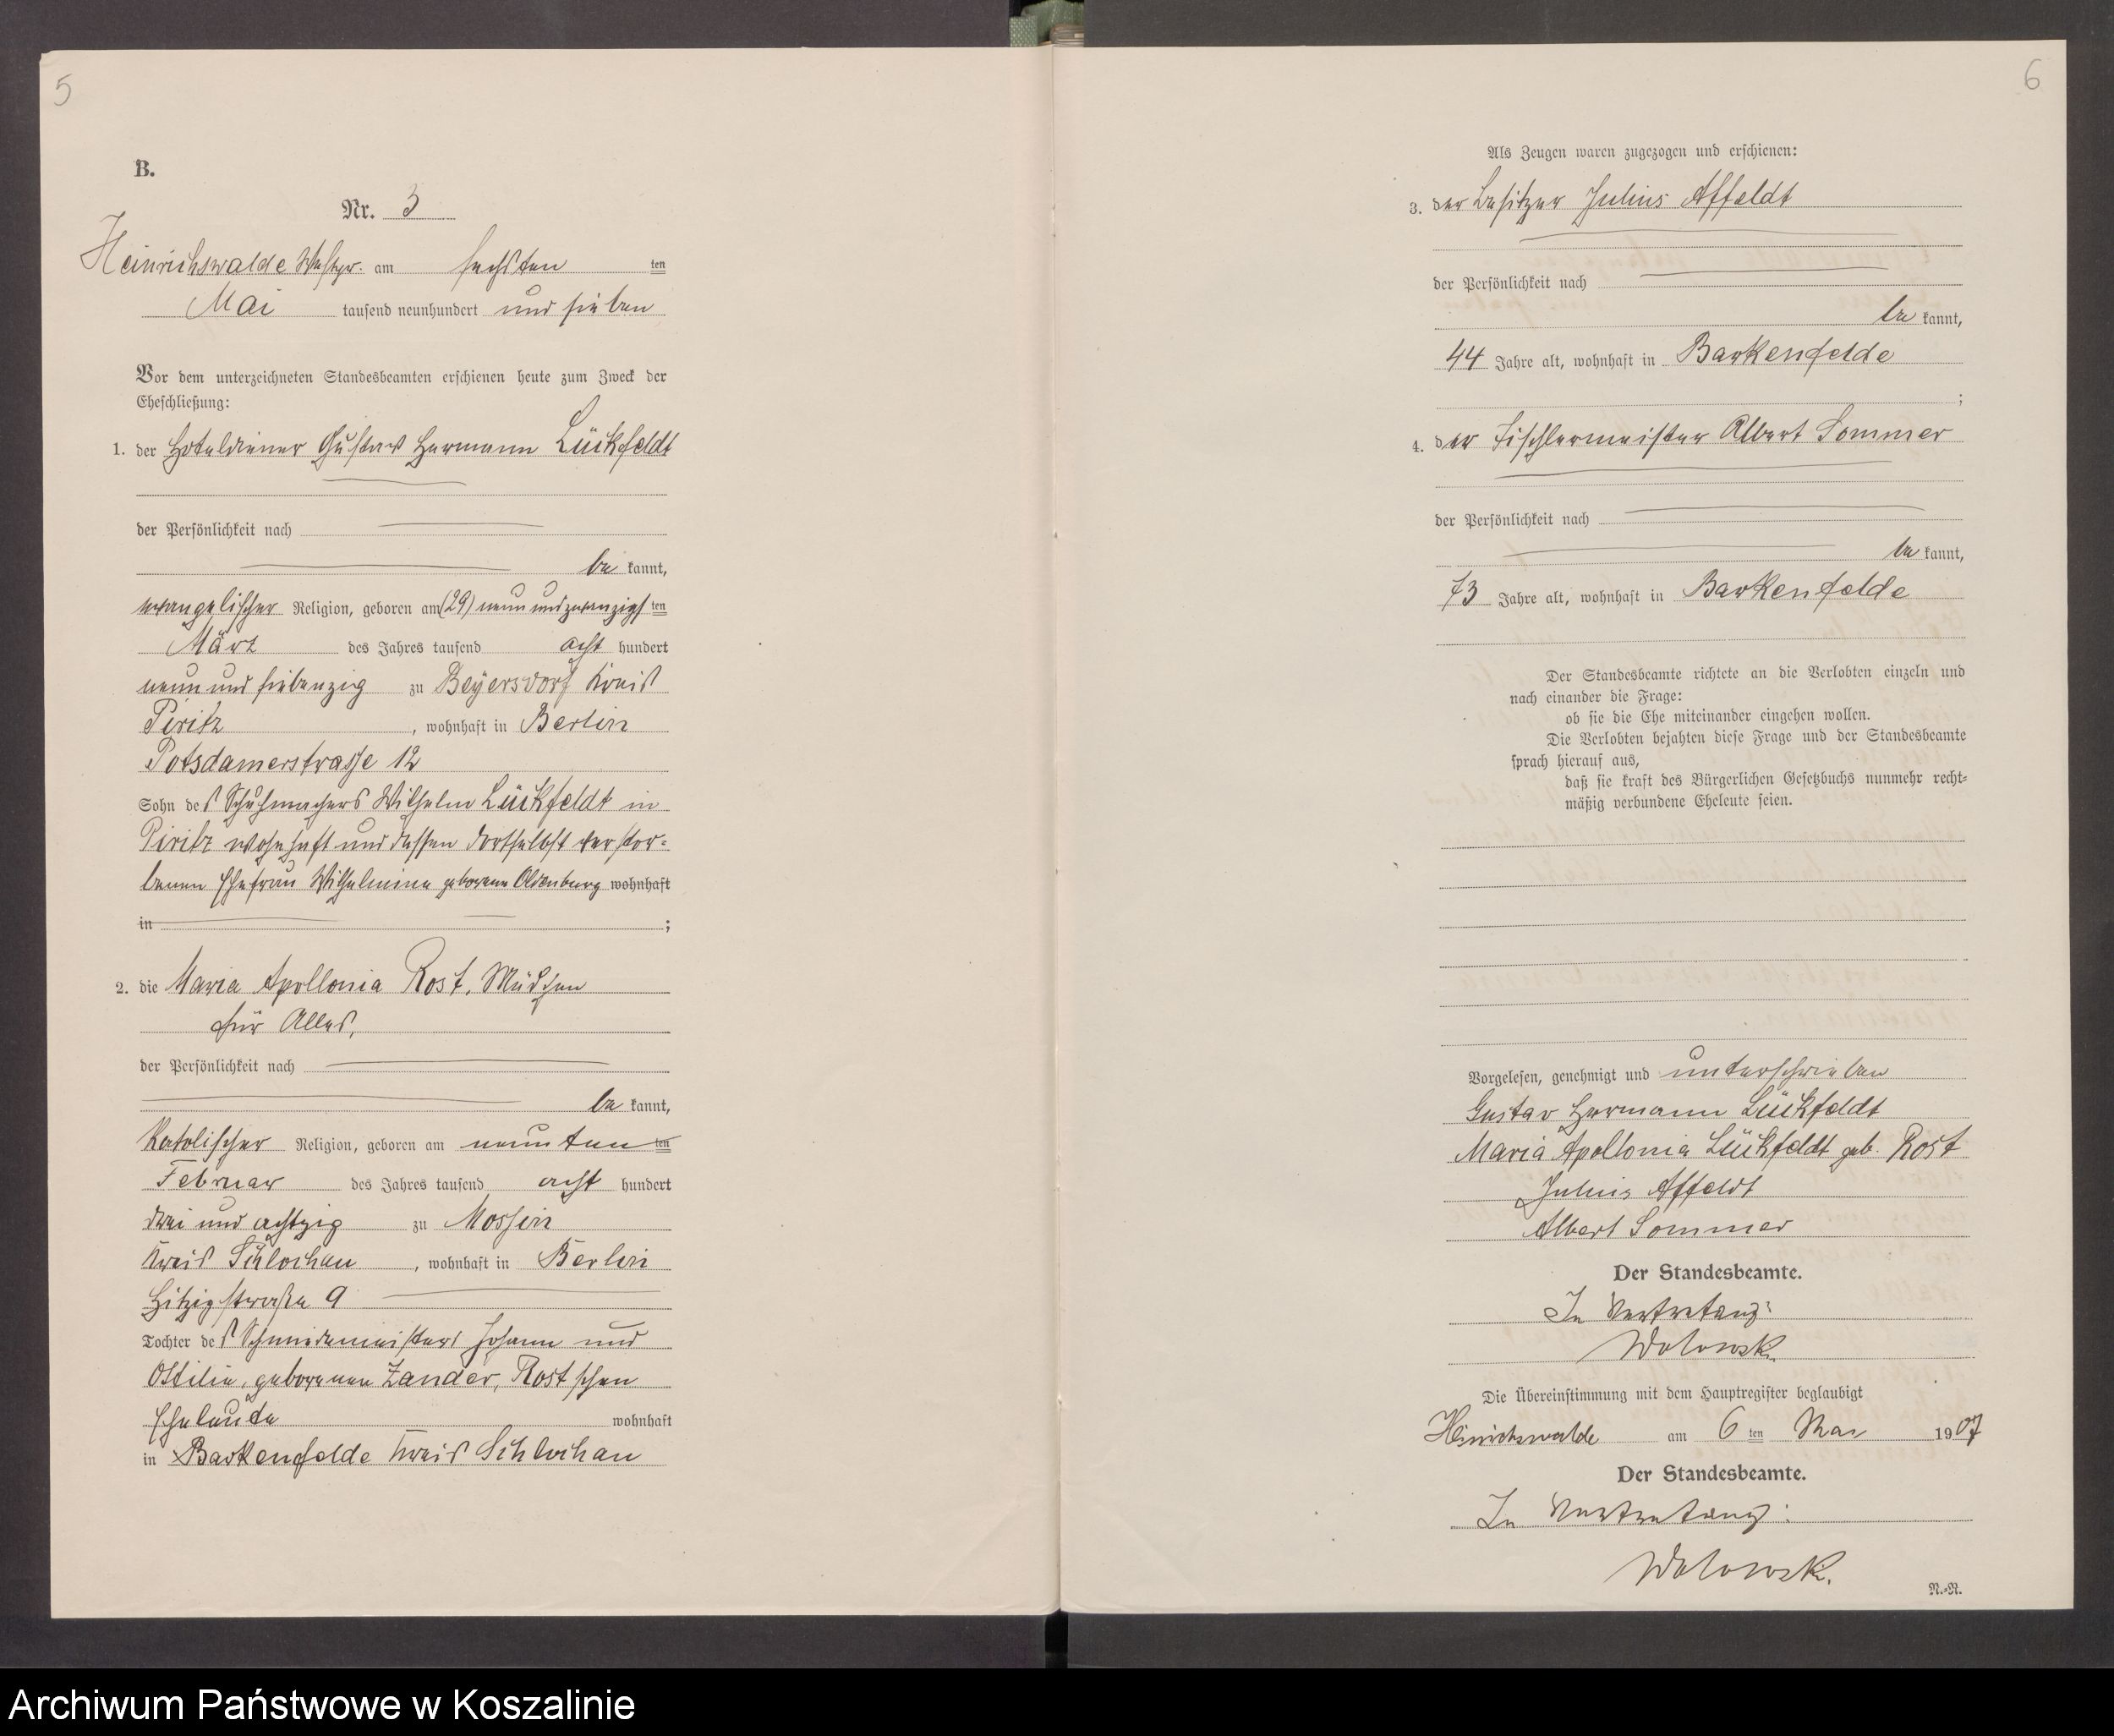 5
B.
Nr. 3
Heinrichswalde Westpr. am sechsten ten
Mai tausend neunhundert und sieben
Vor dem unterzeichneten Standesbeamten erschienen heute zum Zweck der
Eheschließung:
1. der Hoteldiener Gustav Hermann Lückfeldt
der Persönlichkeit nach
be kannt,
evangelischer Religion, geboren am (29) neun und zwanzigs ten
März des Jahres tausend acht hundert
neun und siebenzig zu Beyersdorf Kreis
Piritz, wohnhaft in Berlin
Potsdamerstrasse 12
Sohn des Schuhmachers Wilhelm Lückfeldt in
Piritz wohnhaft und dessen dortselbst verstor-
benen Ehefrau Wilhelmine geborene Oldenburg wohnhaft
in ;
2. die Maria Apollonia Rost, Mädchen
für Alles,
der Persönlichkeit nach
be kannt,
Katolischer Religion, geboren am neunten ten
Februar des Jahres tausend acht hundert
drei und achtzig zu Mossin
Kreis Schlochau, wohnhaft in Berlin
Hitzigstraße 9
Tochter des Schmiedemeisters Johann und
Ottilie, geborenen Zander, Rost'schen
Eheleute wohnhaft
in Barkenfelde Kreis Schlochau
6
Als Zeugen waren zugezogen und erschienen:
3. der Besitzer Julius Affeldt
der Persönlichkeit nach
be kannt,
44 Jahre alt, wohnhaft in Barkenfelde
;
4. der Tischlermeister Albert Sommer
der Persönlichkeit nach
be kannt,
73 Jahre alt, wohnhaft in Barkenfelde
Der Standesbeamte richtete an die Verlobten einzeln und
nach einander die Frage:
ob sie die Ehe miteinander eingehen wollen.
Die Verlobten bejahten diese Frage und der Standesbeamte
sprach hierauf aus,
daß sie kraft des Bürgerlichen Gesetzbuchs nunmehr recht-
mäßig verbundene Eheleute seien.
Vorgelesen, genehmigt und unterschrieben
Gustav Hermann Lückfeldt
Maria Apollonia Lückfeldt geb. Rost
Julius Affeldt
Albert Sommer
Der Standesbeamte.
In Vertretung:
Wolowski
Die Übereinstimmung mit dem Hauptregister beglaubigt
Heinrichswalde am 6 ten Mai 1907
Der Standesbeamte.
In Vertretung:
Wolowski.
N.-R.
Archiwum Państwowe w Koszalinie